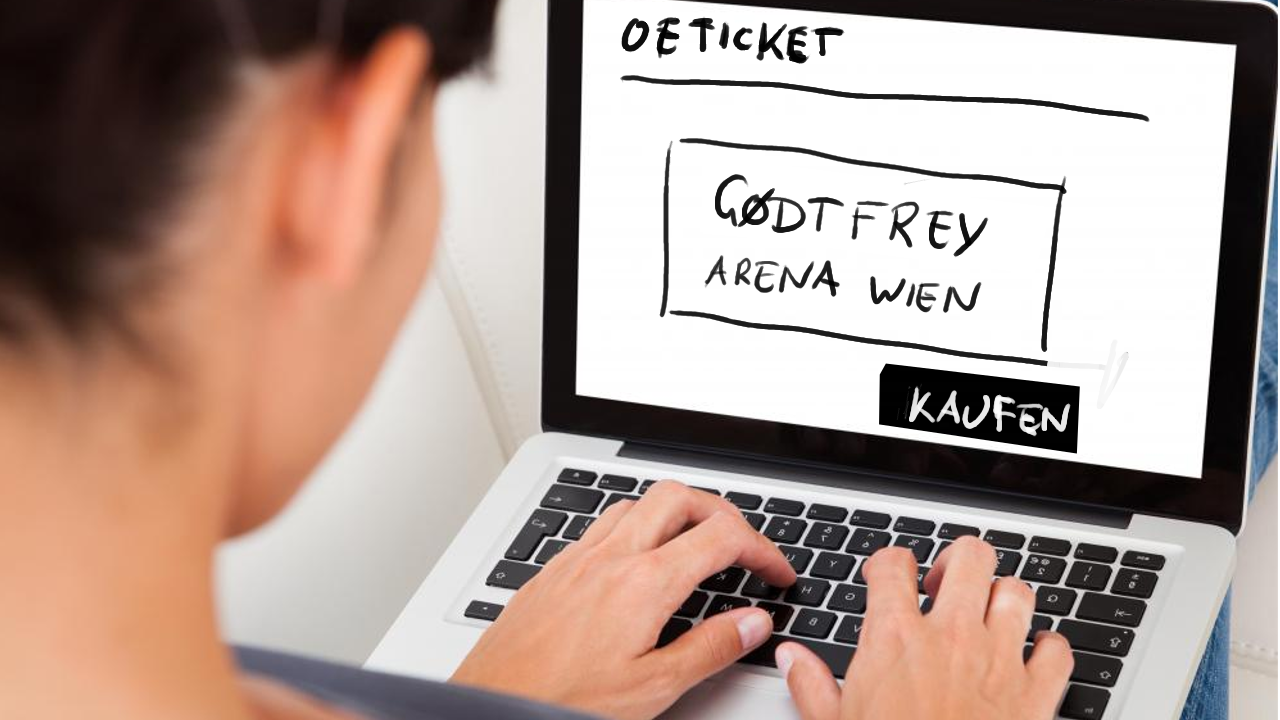 OETICKET
GØDTFREY
ARENA WIEN
KAUFEN